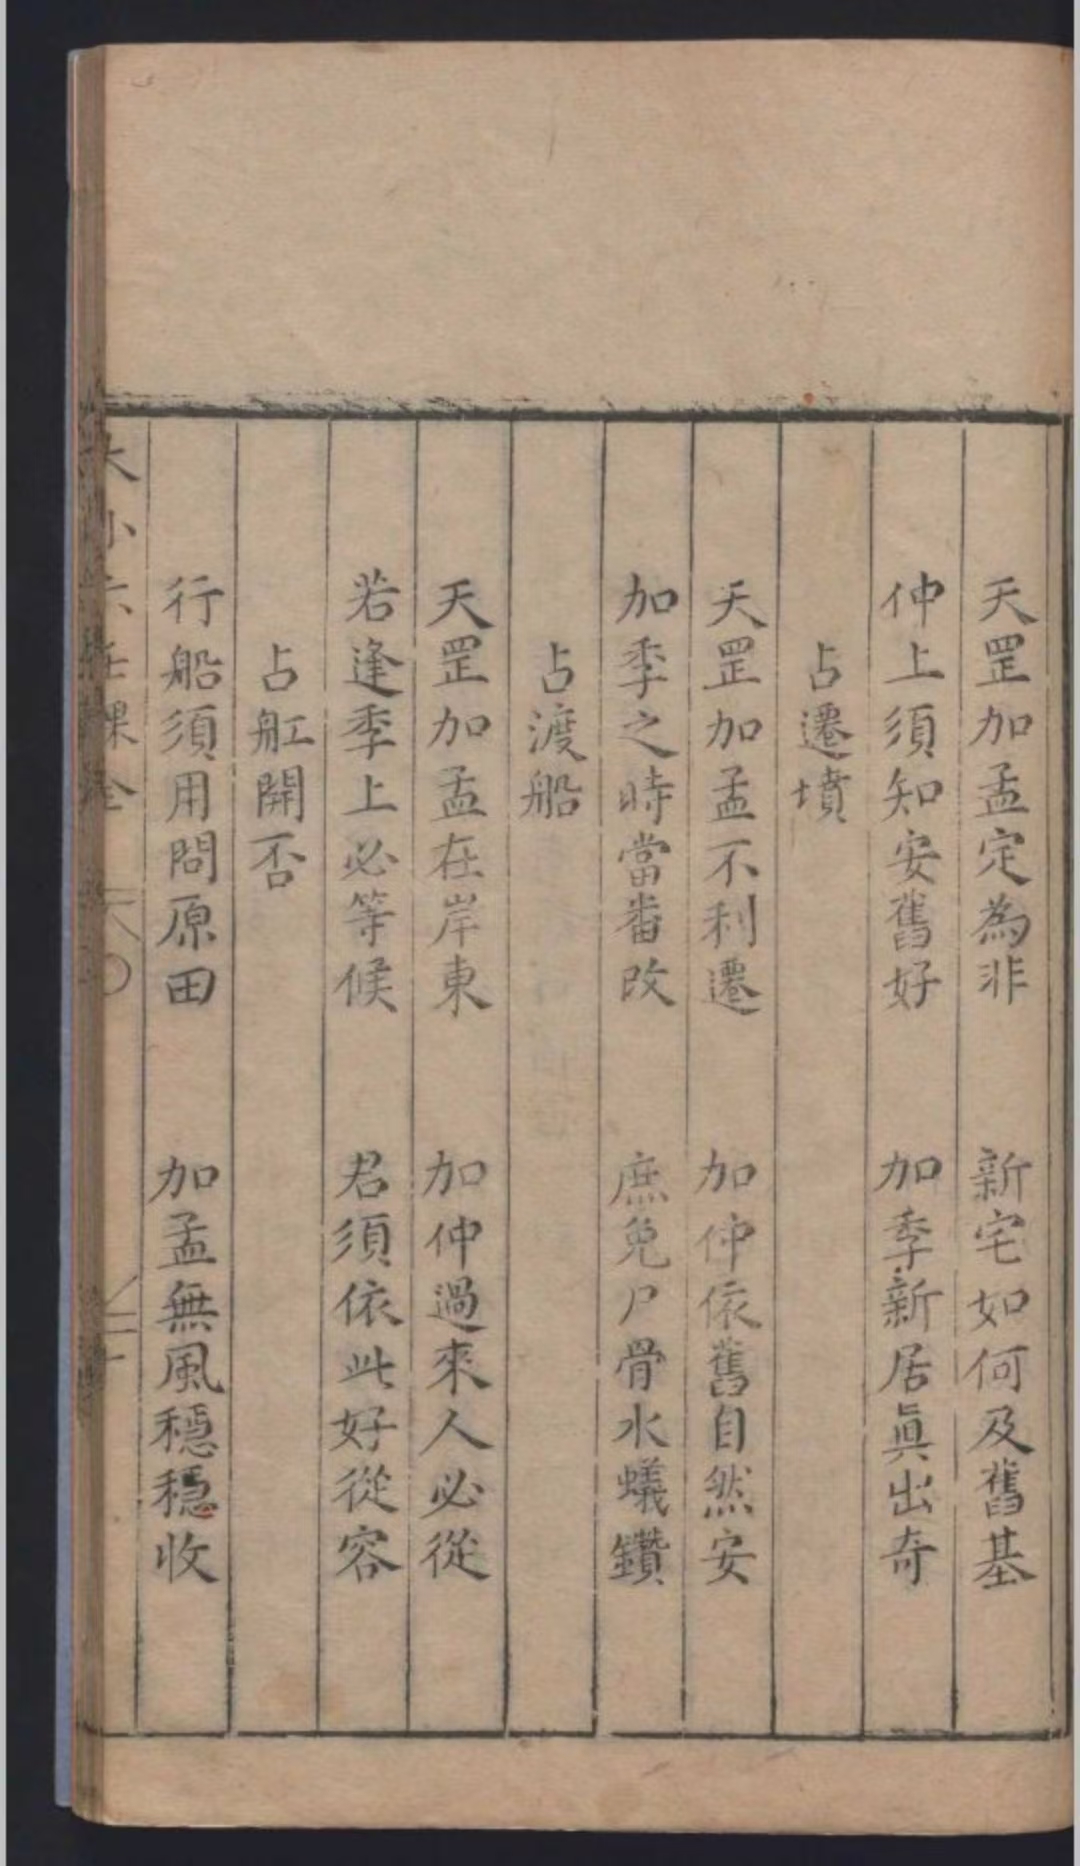 天罡加孟定為非　新宅如何及舊基
仲上須知安舊好　加季新居眞出奇
占遷墳
天罡加孟不利遷　加仲依舊自然安
加季之時當畨改　庶免尸骨水蟻鑽
占渡船
天罡加孟在岸東　加仲過來人必從
若逢季上必等候　君須依此好從容
占舡開否
行船須用問原田　加孟無風穩穩收
大小六壬課全